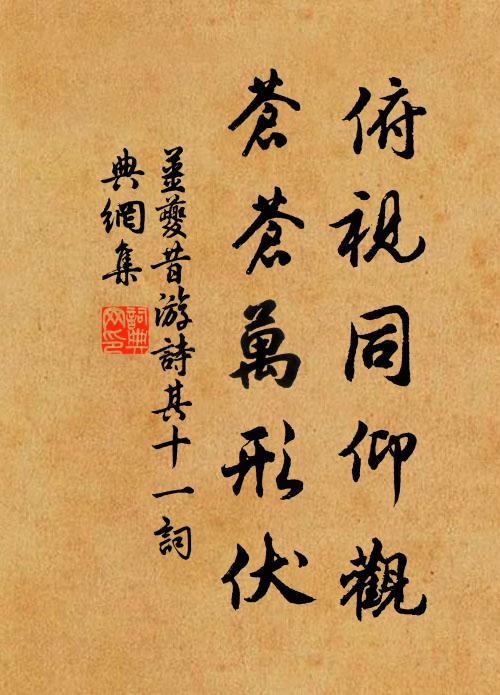 俯視同仰觀
蒼蒼萬形伏
姜夔昔游詩其十一詞
典網集
詞典
网印